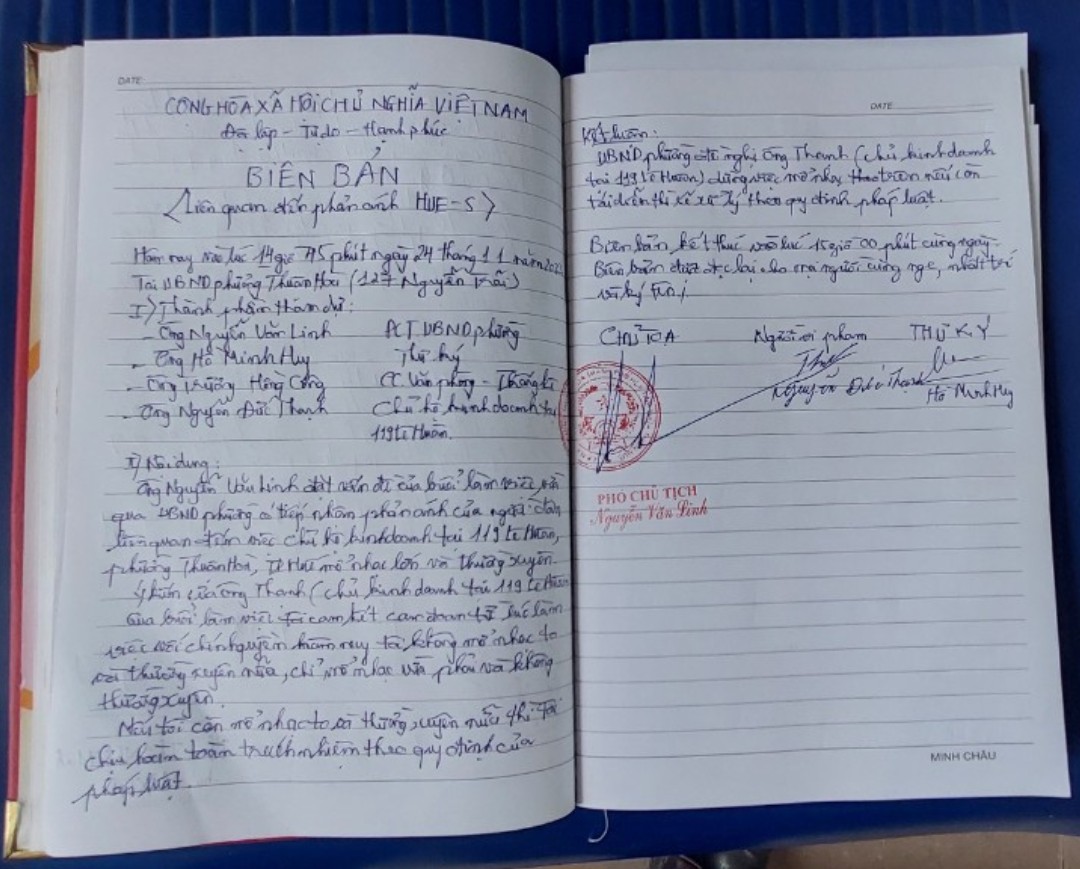 DATE:
CỘNG HÒA XÃ HỘI CHỦ NGHĨA VIỆT NAM
Độc lập - Tự do - Hạnh phúc
BIÊN BẢN
<Liên quan đến phản ánh HUE-S>
Hôm nay vào lúc 14 giờ 45 phút ngày 24 tháng 11 năm
Tại UBND phường Thuận Hòa (127 Nguyễn Trãi)
I) Thành phần tham dự:
- Ông Nguyễn Văn Linh PCT UBND phường
- Ông Hồ Minh Huy Thư ký
- Ông Trương Hồng Công CC Văn phòng - Thống kê
- Ông Nguyễn Đức Thạnh Chủ hộ kinh doanh tại
119 Lê Huân.
II) Nội dung:
Ông Nguyễn Văn Linh đặt vấn đề của buổi làm việc, vừa
qua UBND phường có tiếp nhận phản ánh của người dân
liên quan đến việc chủ hộ kinh doanh tại 119 Lê Huân,
phường Thuận Hòa, TP Huế mở nhạc lớn và thường xuyên.
Ý kiến của ông Thạnh (chủ kinh doanh tại 119 Lê Huân
Qua buổi làm việc tôi cam kết cam đoan từ lúc làm
việc với chính quyền hôm nay tôi không mở nhạc to
và thường xuyên nữa, chỉ mở nhạc vừa phải và không
thường xuyên.
Nếu tôi còn mở nhạc to và thường xuyên nữa thì tôi
chịu hoàn toàn trách nhiệm theo quy định của
pháp luật.
DATE:
Kết luận:
UBND phường đề nghị ông Thạnh (chủ kinh doanh
tại 119 Lê Huân) dừng việc mở nhạc theo trên nếu còn
tái diễn thì sẽ xử lý theo quy định pháp luật.
Biên bản kết thúc vào lúc 15 giờ 00 phút cùng ngày.
Biên bản được đọc lại cho mọi người cùng nge, nhất trí
và ký tên.
CHỦ TỌA Người vi phạm THƯ KÝ
Nguyễn Đức Thạnh Hồ Minh Huy
PHÓ CHỦ TỊCH
Nguyễn Văn Linh
MINH CHÂU